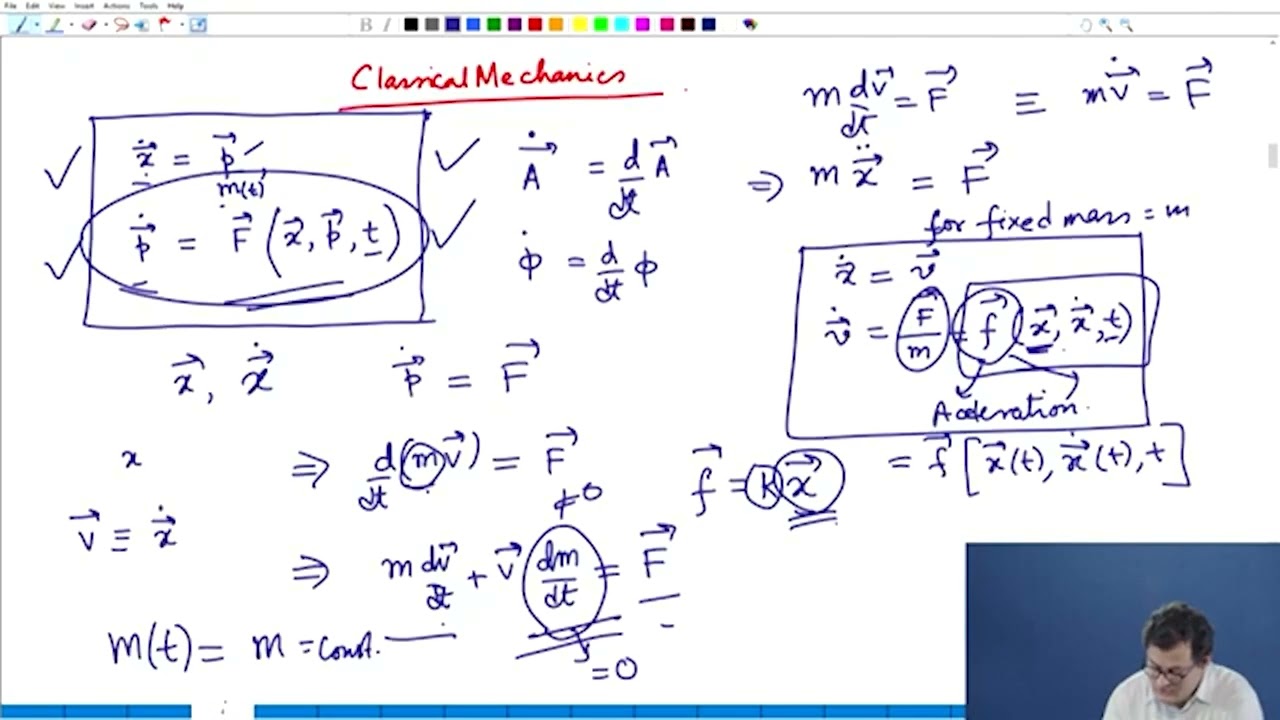 File Edit View Insert Actions Tools Help
B I
Classical Mechanics
ẋ⃗ = p⃗ / m(t)
ṗ⃗ = F⃗ (x⃗, p⃗, t)
Ȧ⃗ = d/dt A⃗
ϕ̇ = d/dt ϕ
x⃗, ẋ⃗
ṗ⃗ = F⃗
x
⇒ d/dt (m v⃗) = F⃗
≠ 0
v⃗ ≡ ẋ⃗
⇒ m dv⃗/dt + v⃗ dm/dt = F⃗
m(t) = m = const.
= 0
m dv⃗/dt = F⃗ ≡ m v̇⃗ = F⃗
⇒ m ẍ⃗ = F⃗
for fixed mass = m
ẋ⃗ = v⃗
v̇⃗ = F⃗/m = f⃗ (x⃗, ẋ⃗, t)
Acceleration.
f⃗ = k x⃗
= f⃗ [x⃗(t), ẋ⃗(t), t]